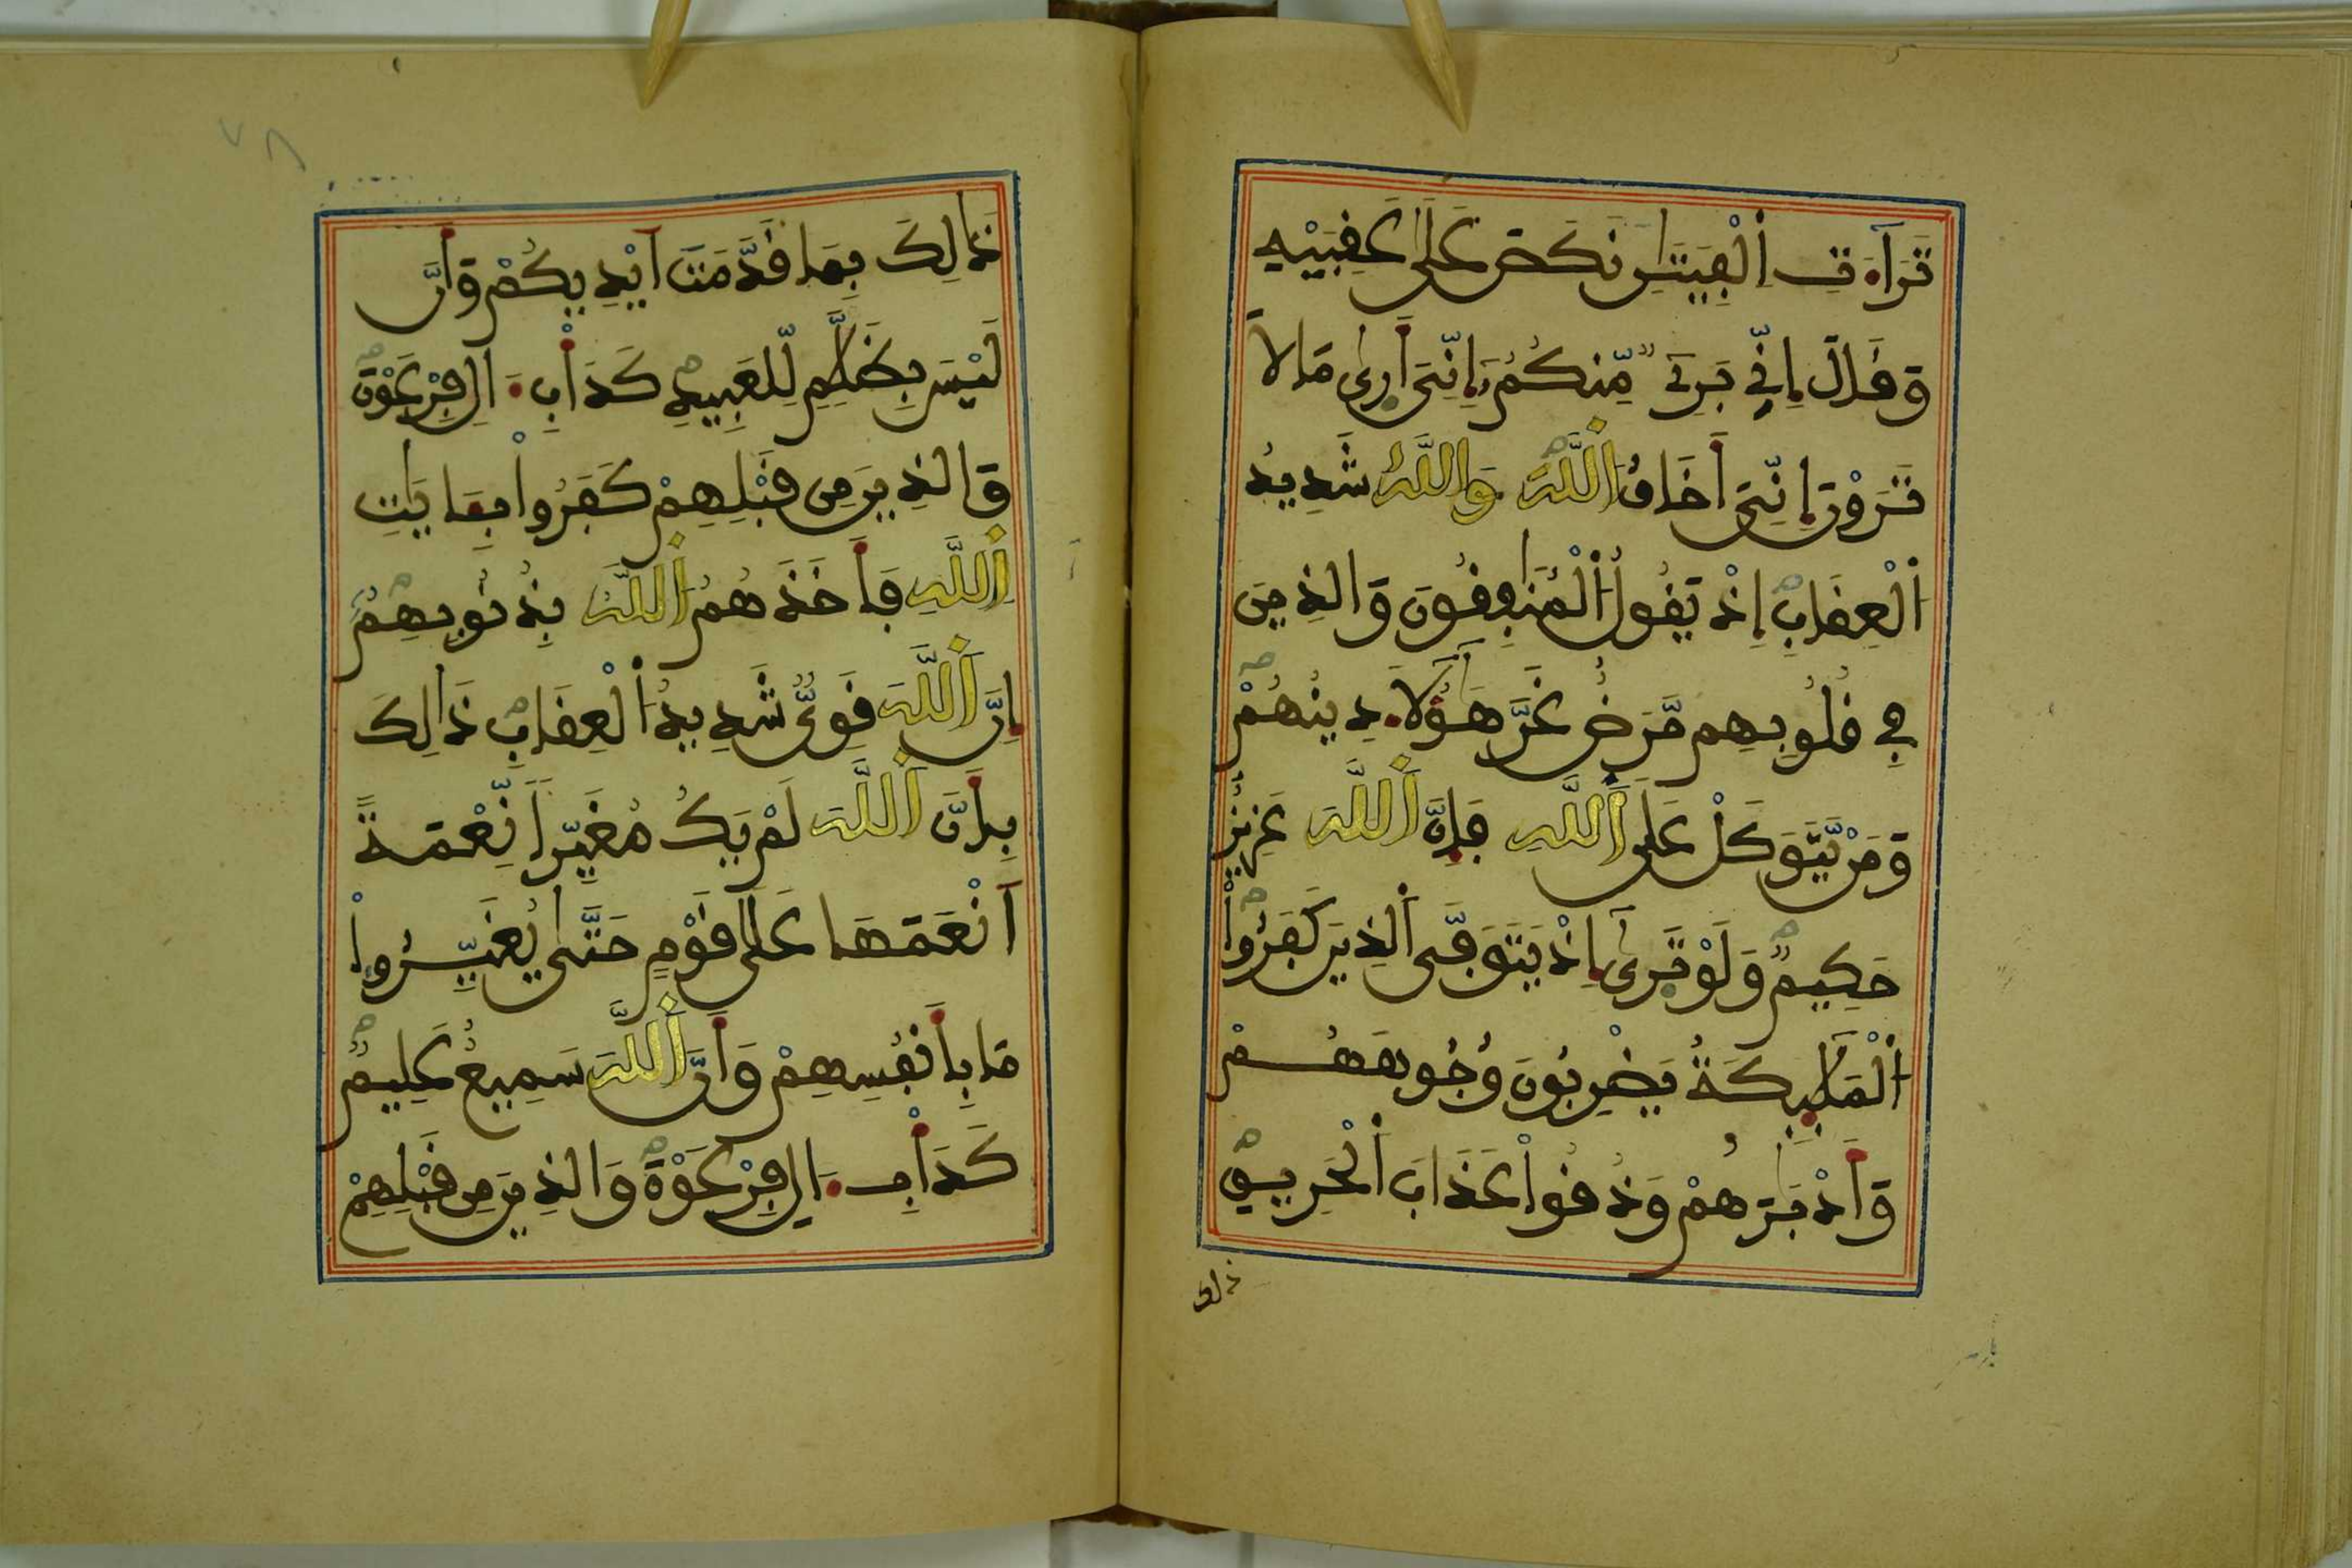 تَرَآءَتِ اِ۬لْفِئَتَٰنِ نَكَصَ عَلَىٰ عَقِبَيْهِ
وَقَالَ إِنِّي بَرِےٓءٞ مِّنكُمُۥٓ إِنِّيَ أَر۪ىٰ مَا لَا
تَرَوْنَ إِنِّيَ أَخَافُ اُ۬للَّهَ وَاللَّهُ شَدِيدُ
اُ۬لْعِقَابِ إِذْ يَقُولُ اُ۬لْمُنَٰفِقُونَ وَالذِينَ
فِي قُلُوبِهِم مَّرَضٌ غَرَّ هَٰٓؤُلَآءِ دِينُهُمْ
وَمَنْ يَّتَوَكَّلْ عَلَى اَ۬للَّهِ فَإِنَّ اَ۬للَّهَ عَزِيزٌ
حَكِيمٞ وَلَوْ تَر۪ىٰٓ إِذْ يَتَوَفَّى اَ۬لذِينَ كَفَرُواْ
اُ۬لْمَلَٰٓئِكَةُ يَضْرِبُونَ وُجُوهَهُمْ
وَأَدْبَٰرَهُمْ وَذُوقُواْ عَذَابَ اَ۬لْحَرِيقِ
ذلك
ذَٰلِكَ بِمَا قَدَّمَتَ اَيْدِيكُمْ وَأَنَّ
لَيْسَ بِظَلَّٰمٖ لِّلْعَبِيدِ كَدَأْبِ ءَالِ فِرْعَوْنَ
وَالذِينَ مِن قَبْلِهِمْ كَفَرُواْ بِـَٔايَٰتِ
اِ۬للَّهِ فَأَخَذَهُمُ اُ۬للَّهُ بِذُنُوبِهِمُۥٓ
إِنَّ اَ۬للَّهَ قَوِيّٞ شَدِيدُ اُ۬لْعِقَابِ ذَٰلِكَ
بِأَنَّ اَ۬للَّهَ لَمْ يَكُ مُغَيِّراٗ نِّعْمَةً
اَنْعَمَهَا عَلَىٰ قَوْمٍ حَتَّىٰ يُغَيِّرُواْ
مَا بِأَنفُسِهِمْ وَأَنَّ اَ۬للَّهَ سَمِيعٌ عَلِيمٞ
كَدَأْبِ ءَالِ فِرْعَوْنَ وَالذِينَ مِن قَبْلِهِمْ